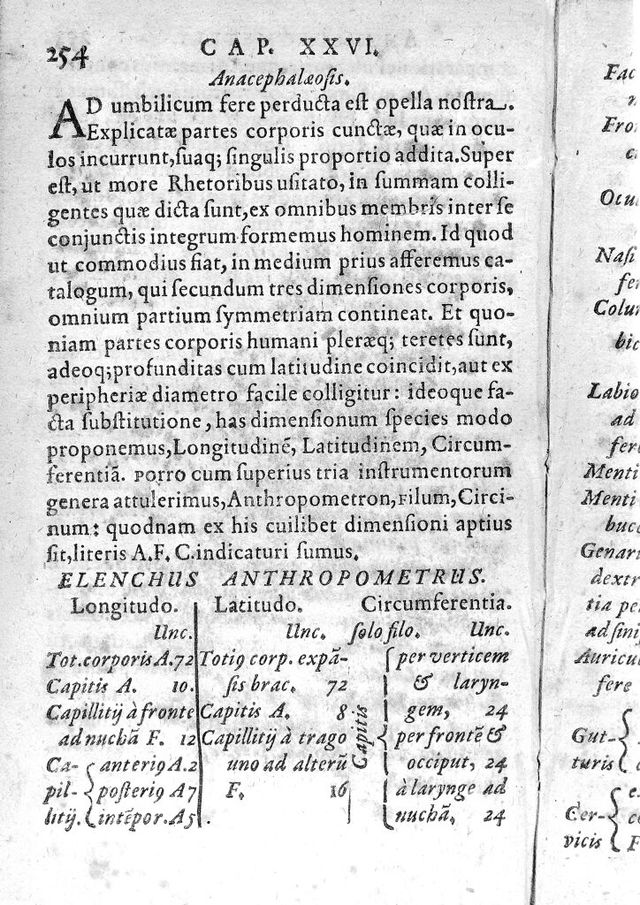 254 CAP. XXVI.
Anacephalæosis.
AD umbilicum fere perducta est opella nostra.
Explicatæ partes corporis cunctæ, quæ in ocu-
los incurrunt, suaq; singulis proportio addita. Super
est, ut more Rhetoribus usitato, in summam colli-
gentes quæ dicta sunt, ex omnibus membris inter se
conjunctis integrum formemus hominem. Id quod
ut commodius fiat, in medium prius afferemus ca-
talogum, qui secundum tres dimensiones corporis,
omnium partium symmetriam contineat. Et quo-
niam partes corporis humani pleræq; teretes sunt,
adeoq; profunditas cum latitudine coincidit, aut ex
peripheriæ diametro facile colligitur: ideoque fa-
cta substitutione, has dimensionum species modo
proponemus, Longitudinē, Latitudinem, Circum-
ferentiā. Porro cum superius tria instrumentorum
genera attulerimus, Anthropometron, Filum, Circi-
num: quodnam ex his cuilibet dimensioni aptius
sit, literis A. F. C. indicaturi sumus.
ELENCHUS ANTHROPOMETRUS.
Longitudo. Latitudo. Circumferentia.
Unc. Unc. solo filo. Unc.
Tot. corporis A. 72
Capitis A. 10.
Capillitij à fronte
ad nuchā F. 12
Ca-
pil-
litij.
anteriꝰ A. 2
posteriꝰ A 7
intēpor. A 5
Totiꝰ corp. expā-
sis brac. 72
Capitis A. 8
Capillitij à trago
uno ad alterū
F. 16
Capitis
per verticem
& laryn-
gem, 24
per frontē &
occiput, 24
à larynge ad
nuchā, 24
Fac
Fro
Ocu
Nasi
fer
Colun
bic
Labio
ad
fere
Menti
Menti
bucc
Genar
dextr
tia pe
ad sinis
Auricu
fere
Gut-
turis
Cer-
vicis